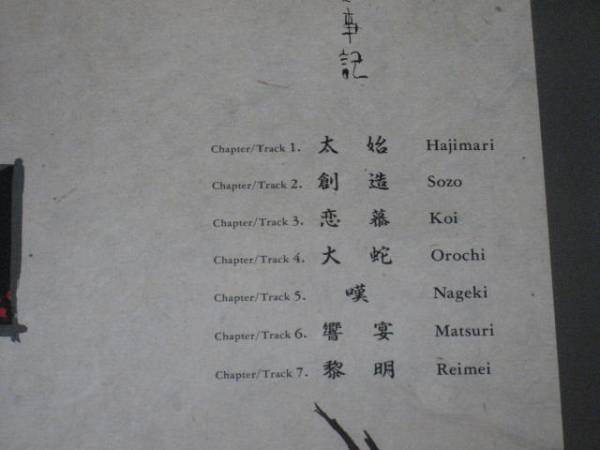 事記
Chapter/Track 1. 太始 Hajimari
Chapter/Track 2. 創造 Sozo
Chapter/Track 3. 恋慕 Koi
Chapter/Track 4. 大蛇 Orochi
Chapter/Track 5. 嘆 Nageki
Chapter/Track 6. 響宴 Matsuri
Chapter/Track 7. 黎明 Reimei